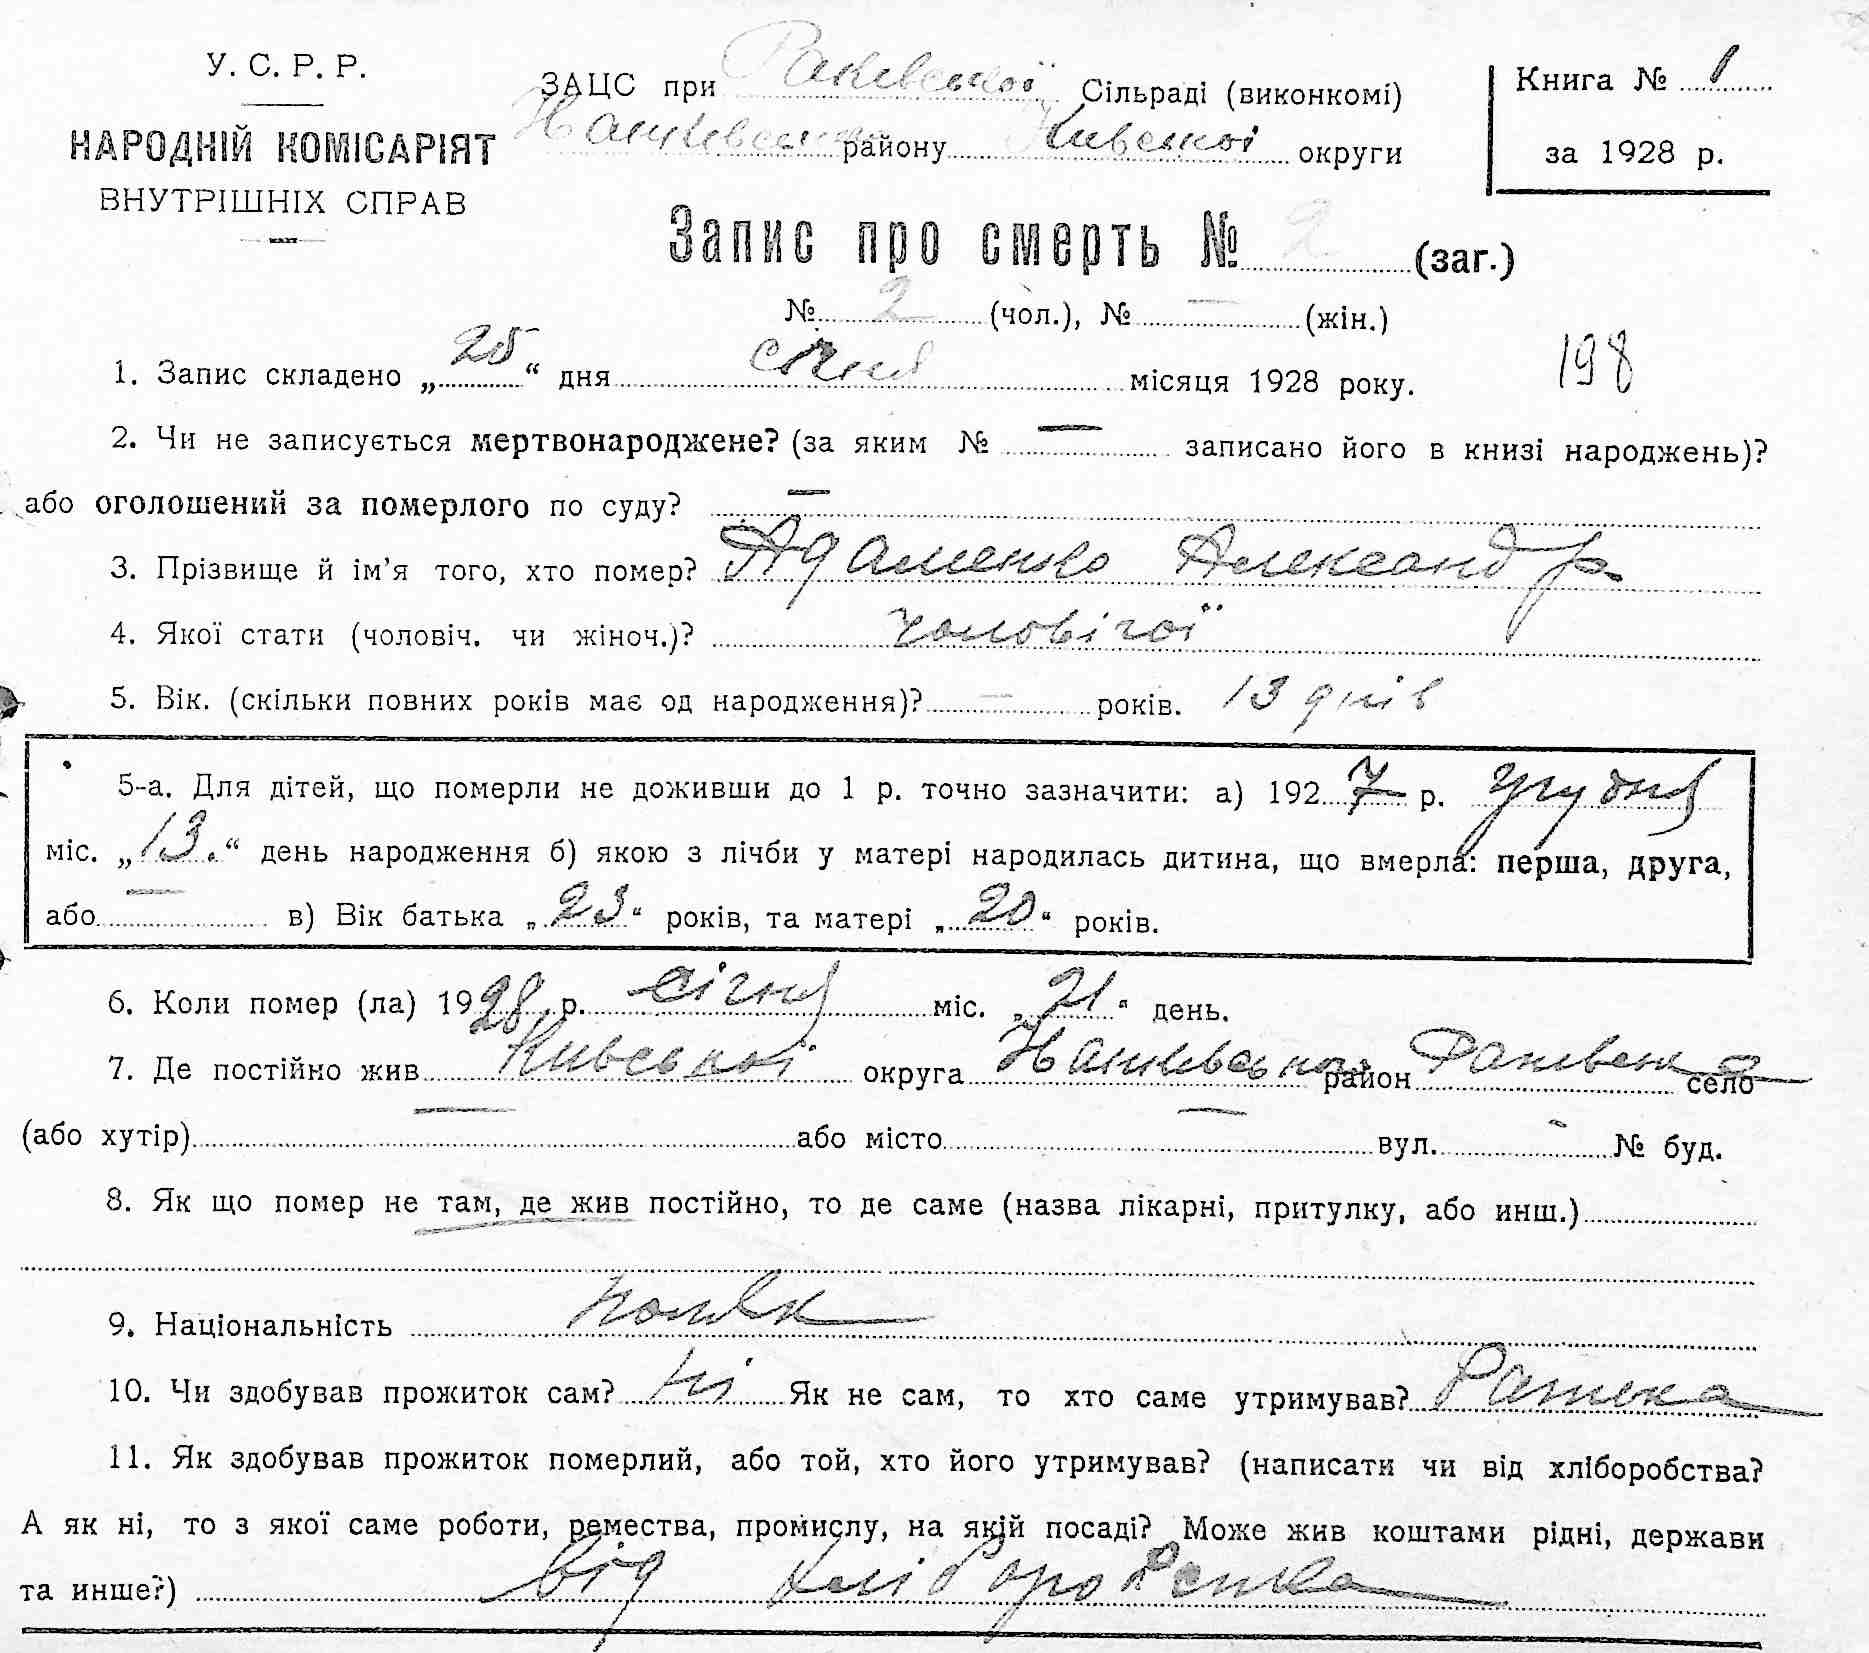 У. С. Р. Р.
НАРОДНІЙ КОМІСАРІЯТ
ВНУТРІШНІХ СПРАВ
ЗАЦС при Раківської Сільраді (виконкомі)
району Київської округи
Книга № 1
за 1928 р.
Запис про смерть № 2 (заг.)
№ 2 (чол.), № — (жін.)
1. Запис складено „25“ дня січня місяця 1928 року.
198
2. Чи не записується мертвонароджене? (за яким № — записано його в книзі народжень)?
або оголошений за померлого по суду? —
3. Прізвище й ім’я того, хто помер? Адаменко Александр
4. Якої стати (чоловіч. чи жіноч.)? чоловічої
5. Вік. (скільки повних років має од народження)? — років. 13 днів
5-а. Для дітей, що померли не доживши до 1 р. точно зазначити: а) 1927 р. грудня
міс. „13.“ день народження б) якою з лічби у матері народилась дитина, що вмерла: перша, друга,
або — в) Вік батька „23“ років, та матері „20“ років.
6. Коли помер (ла) 1928 р. січня міс. „21“ день.
7. Де постійно жив Київської округа район село
(або хутір) — або місто — вул. - № буд.
8. Як що помер не там, де жив постійно, то де саме (назва лікарні, притулку, або инш.)
9. Національність поляк
10. Чи здобував прожиток сам? ні Як не сам, то хто саме утримував?
11. Як здобував прожиток померлий, або той, хто його утримував? (написати чи від хліборобства?
А як ні, то з якої саме роботи, ремества, промислу, на якій посаді? Може жив коштами рідні, держави
та инше?) від